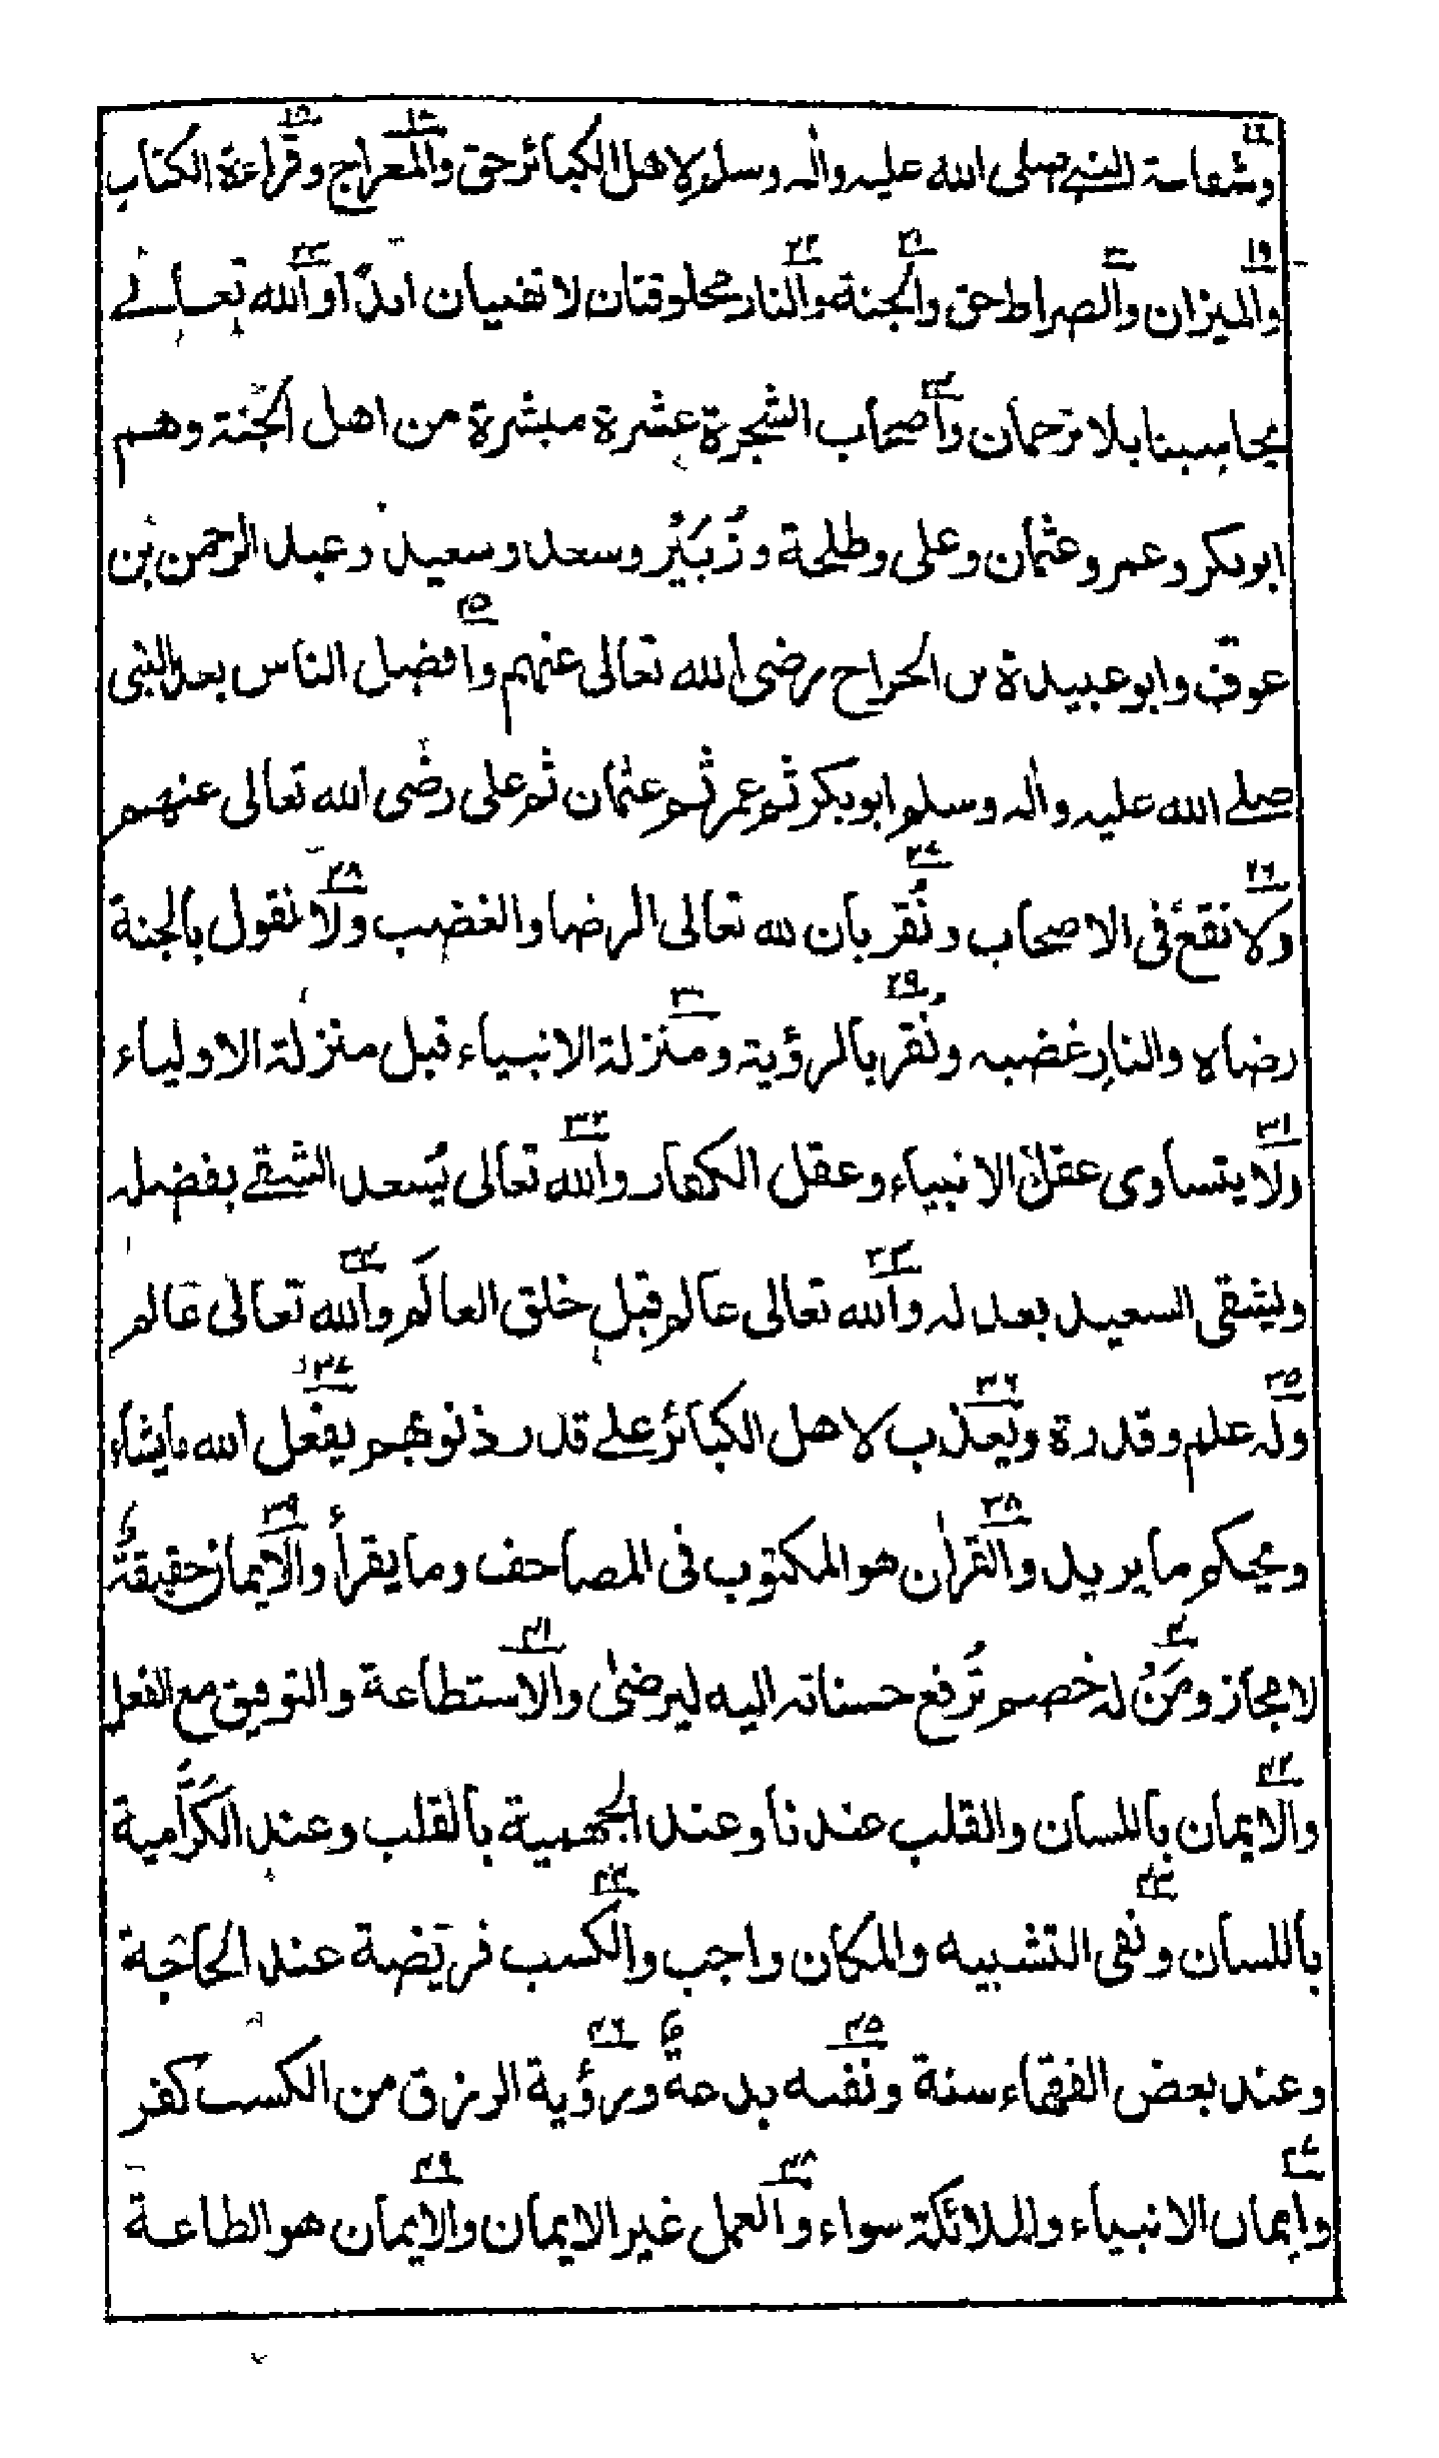 وشفاعة النبي صلى الله عليه واٰله وسلم لاهل الكبائر حق والمعراج وقراءة الكتاب
والميزان والصراط حق والجنة والنار مخلوقتان لا تفنيان ابدًا والله تعالى
يحاسبنا بلا ترجمان واصحاب الشجرة عشرة مبشرة من اهل الجنة وهم
ابوبكر وعمر وعثمان وعلى وطلحة وزُبَيْر وسعد وسعيد وعبد الرحمن بن
عوف وابو عبيدة بن الجراح رضى الله تعالى عنهم وافضل الناس بعد النبى
صلے الله عليه واٰله وسلم ابوبكر ثم عمر ثم عثمان ثم على رضى الله تعالى عنهم
ولا نقع فى الاصحاب ونُقر بان لله تعالى الرضا والغضب ولا نقول بالجنة
رضاه والنار غضبه ونُقر بالرؤية ومنزلة الانبياء قبل منزلة الاولياء
ولا يتساوى عقل الانبياء وعقل الكفار والله تعالى يُسعد الشقے بفضله
ويشقى السعيد بعدله والله تعالى عالم قبل خلق العالَم والله تعالىٰ عالم
وله علم وقدرة ويعذب لاهل الكبائر علے قدر ذنوبهم يفعل الله مايشاء
ويحكم ما يريد والقراٰن هو المكتوب فى المصاحف وما يقرأ والايمان حقيقةٌ
لا مجاز ومَنْ له خصم تُرفع حسناته اليه ليرضىٰ والاستطاعة والتوفيق مع الفعل
والايمان باللسان والقلب عندنا وعند الجهمية بالقلب وعند الكَرَّامية
باللسان ونفى التشبيه والمكان واجب والكسب فريضة عند الحاجة
وعند بعض الفقهاء سنة ونفسه بدعةٌ ورؤية الرزق من الكسب كفر
وايمان الانبياء والملائكة سواء والعمل غير الايمان والايمان هو الطاعة